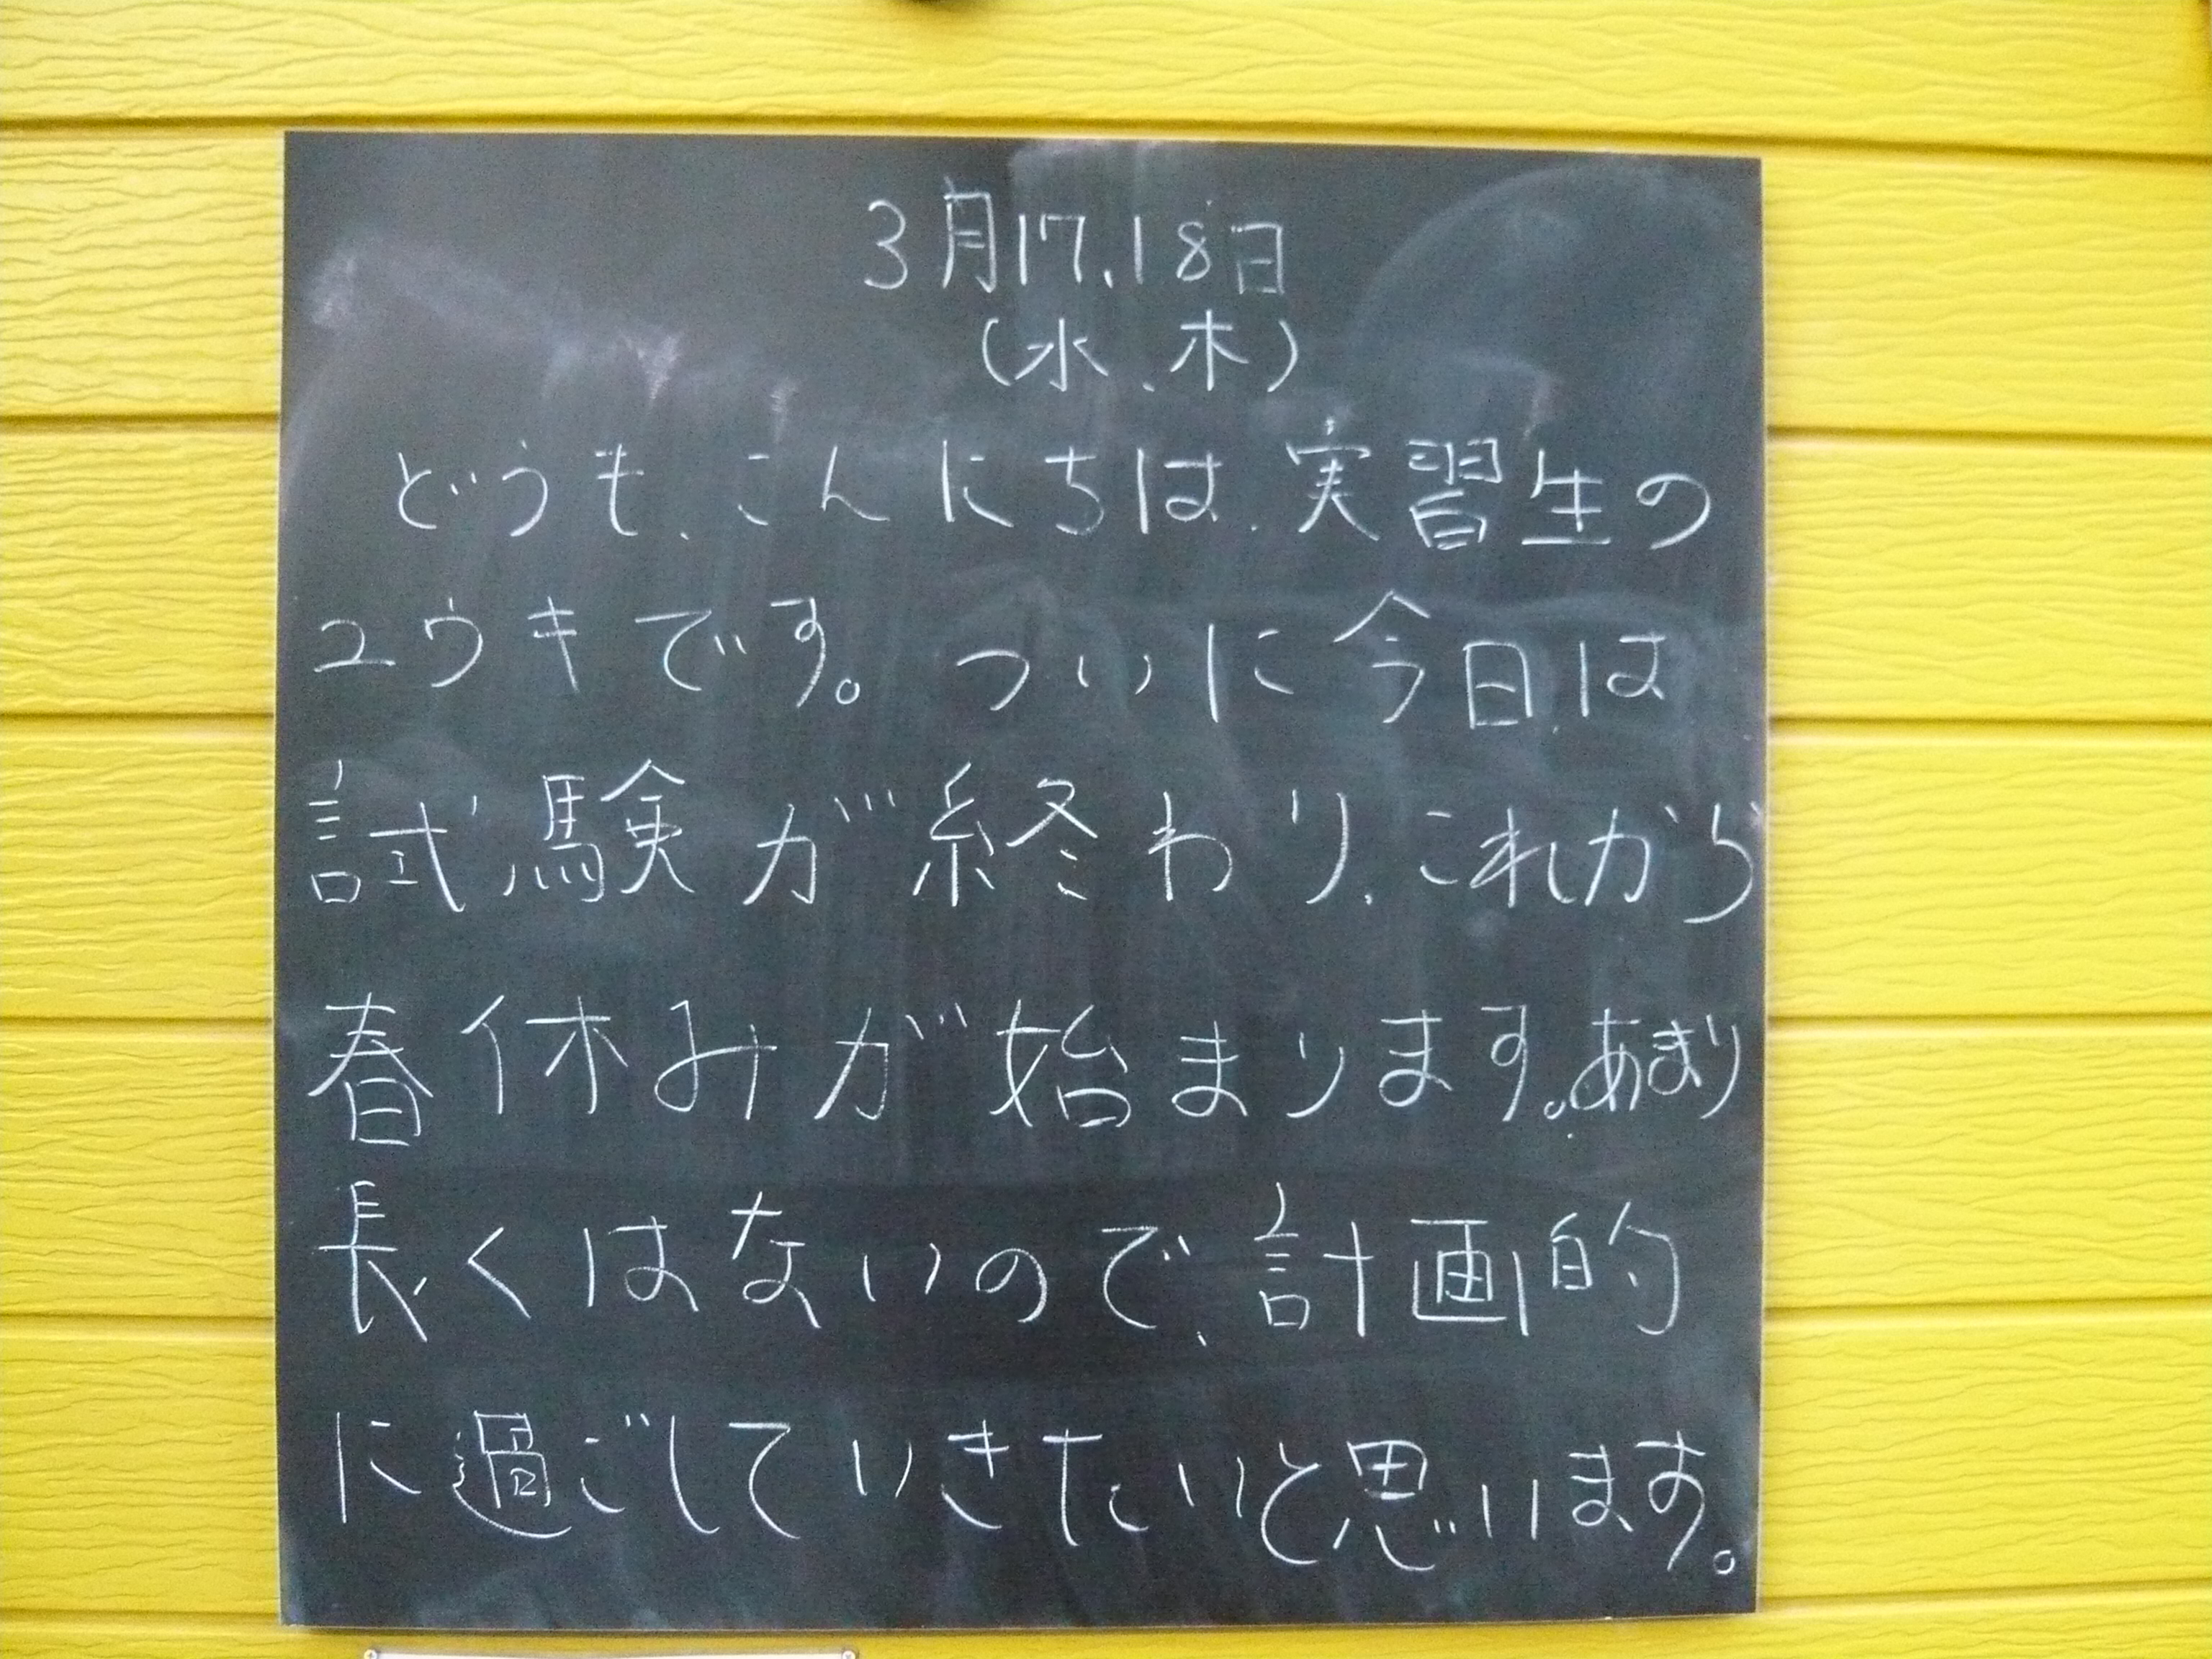 3月17、18日
(水、木)
どうも、こんにちは、実習生の
ユウキです。ついに今日は
試験が終わり、これから
春休みが始まります。あまり
長くはないので、計画的
に過ごしていきたいと思います。